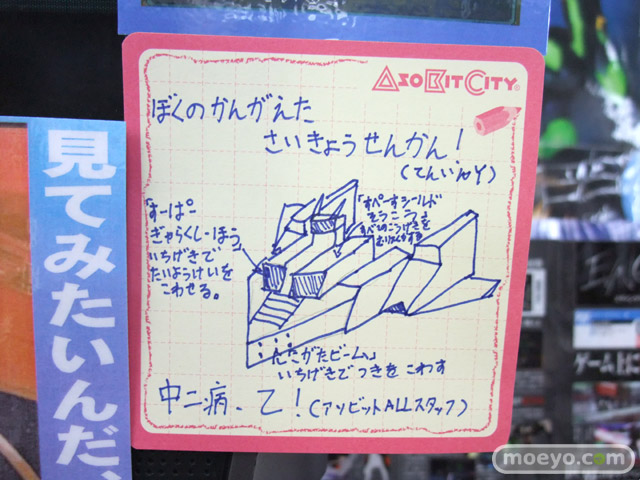 ASOBITCITY
ぼくのかんがえた
さいきょうせんかん!
(てんいんY)
「すーぱー
ぎゃらくしーほう」
いちげきで
たいようけいを
こわせる。
「すぺーすシールド
そうこう」
すべてのこうげきを
むりょくかする
こがたビーム」
いちげきでつきをこわす
中二病、乙!(アソビットALLスタッフ)
見てみたいんだ、
ゲーム上に
moeyo.com